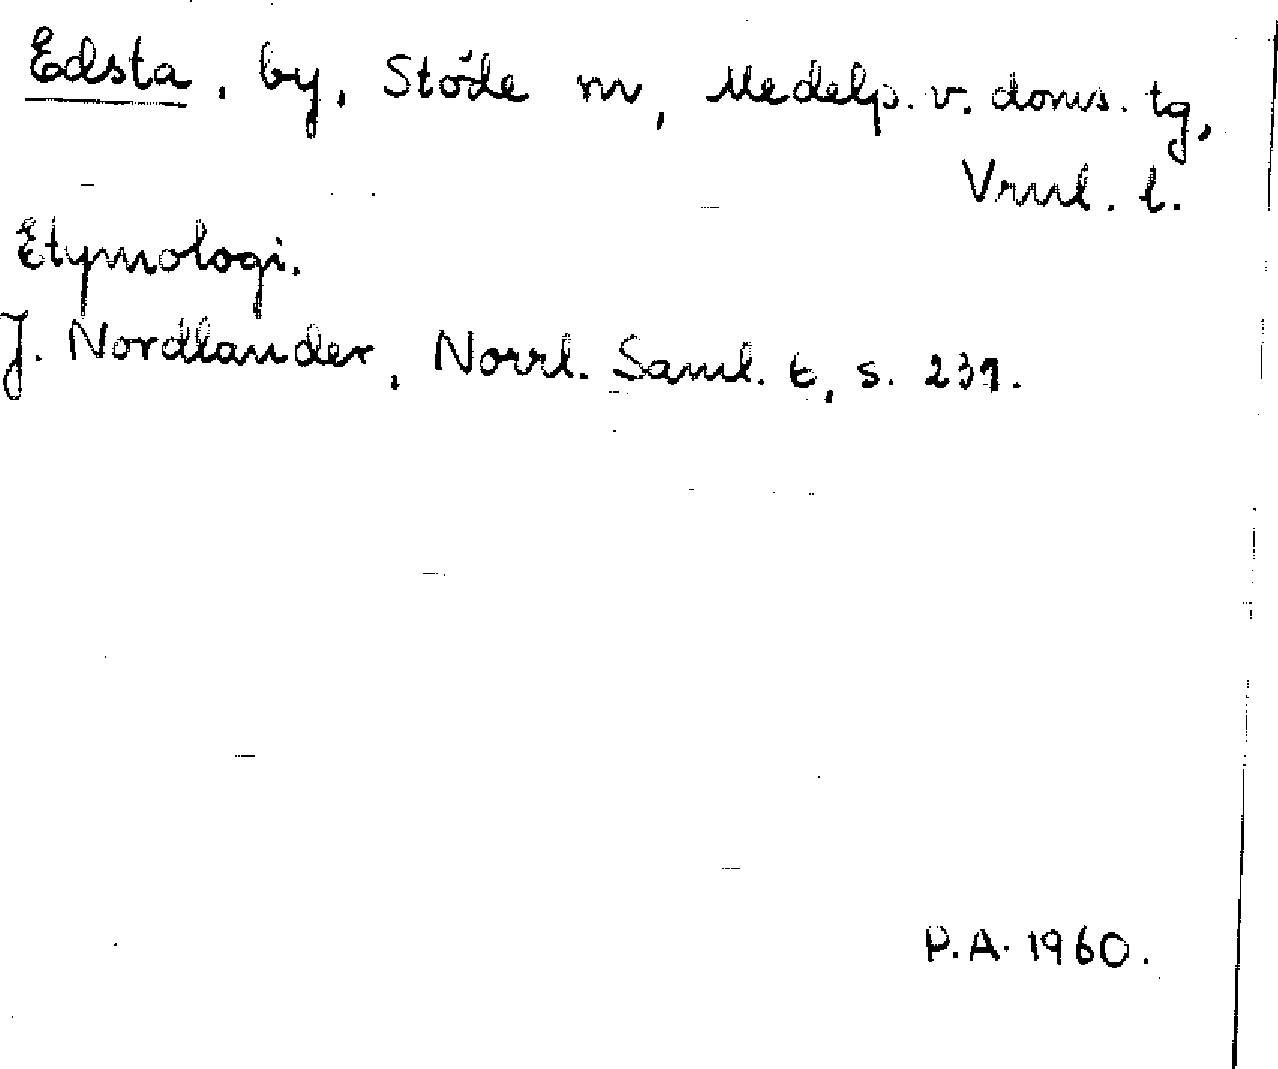 Edsta, by, Stöde sn, Medelp. v. doms. tg,
Vrnl. l.
Etymologi.
J. Nordlander, Norrl. Saml. t, s. 231.
P.A. 1960.